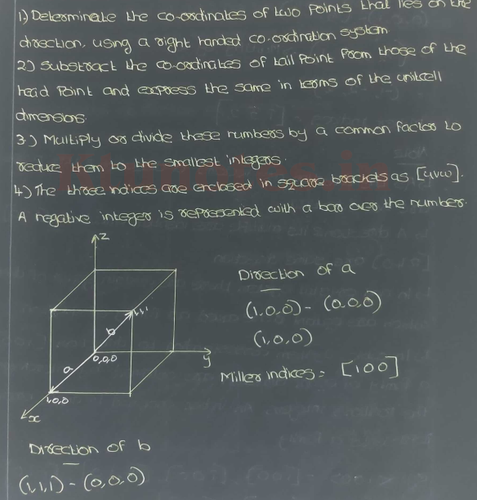 1) Determinate the co-ordinates of two points that lies on the
direction, using a right handed co-ordination system
2) Substract the co-ordinates of tail point from those of the
head point and express the same in terms of the unitcell
dimensions.
3.) Multiply or divide these numbers by a common factor to
reduce them to the smallest integers.
4.) The three indices are enclosed in square brackets as [uvw].
A negative integer is represented with a bar over the number.
z
Direction of a
1,1,1
(1,0,0) - (0,0,0)
b
(1,0,0)
0,0,0
y
a
Miller indices = [100]
1,0,0
x
Direction of b
(1,1,1) - (0,0,0)